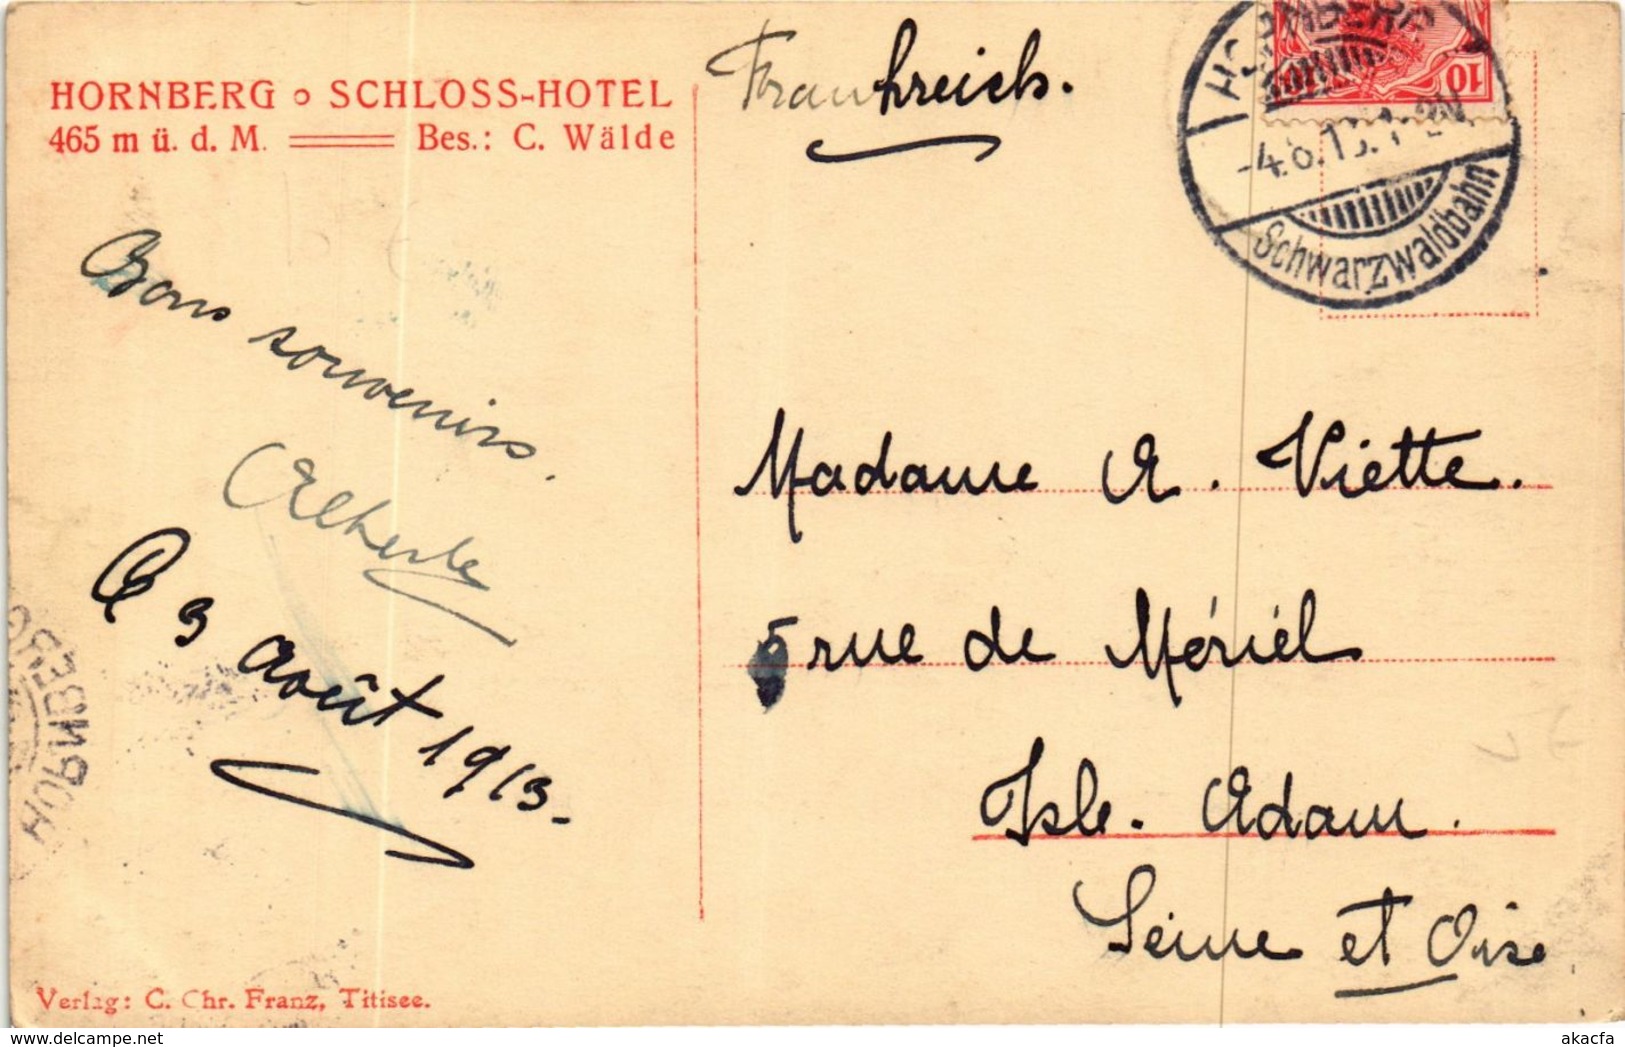 HORNBERG o SCHLOSS-HOTEL
465 m ü. d. M. Bes.: C. Wälde
Frankreich.
HORNBERG
-4.8.13.1-2N
Schwarzwaldbahn
10
Bons souvenirs.
Le 3 Août 1913.
HORNBERG
Madame A. Viette.
5 rue de Mériel
Isle. Adam.
Seine et Oise
Verlag: C. Chr. Franz, Titisee.
akacfa